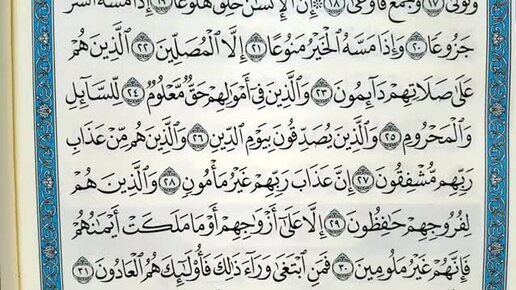 وَتَوَلَّىٰ ١٧ وَجَمَعَ فَأَوْعَىٰٓ ١٨ ۞ إِنَّ ٱلْإِنسَٰنَ خُلِقَ هَلُوعًا ١٩ إِذَا مَسَّهُ ٱلشَّرُّ
جَزُوعًا ٢٠ وَإِذَا مَسَّهُ ٱلْخَيْرُ مَنُوعًا ٢١ إِلَّا ٱلْمُصَلِّينَ ٢٢ ٱلَّذِينَ هُمْ
عَلَىٰ صَلَاتِهِمْ دَآئِمُونَ ٢٣ وَٱلَّذِينَ فِىٓ أَمْوَٰلِهِمْ حَقٌّ مَّعْلُومٌ ٢٤ لِّلسَّآئِلِ
وَٱلْمَحْرُومِ ٢٥ وَٱلَّذِينَ يُصَدِّقُونَ بِيَوْمِ ٱلدِّينِ ٢٦ وَٱلَّذِينَ هُم مِّنْ عَذَابِ
رَبِّهِم مُّشْفِقُونَ ٢٧ إِنَّ عَذَابَ رَبِّهِمْ غَيْرُ مَأْمُونٍ ٢٨ وَٱلَّذِينَ هُمْ
لِفُرُوجِهِمْ حَٰفِظُونَ ٢٩ إِلَّا عَلَىٰٓ أَزْوَٰجِهِمْ أَوْ مَا مَلَكَتْ أَيْمَٰنُهُمْ
فَإِنَّهُمْ غَيْرُ مَلُومِينَ ٣٠ فَمَنِ ٱبْتَغَىٰ وَرَآءَ ذَٰلِكَ فَأُو۟لَٰٓئِكَ هُمُ ٱلْعَادُونَ ٣١